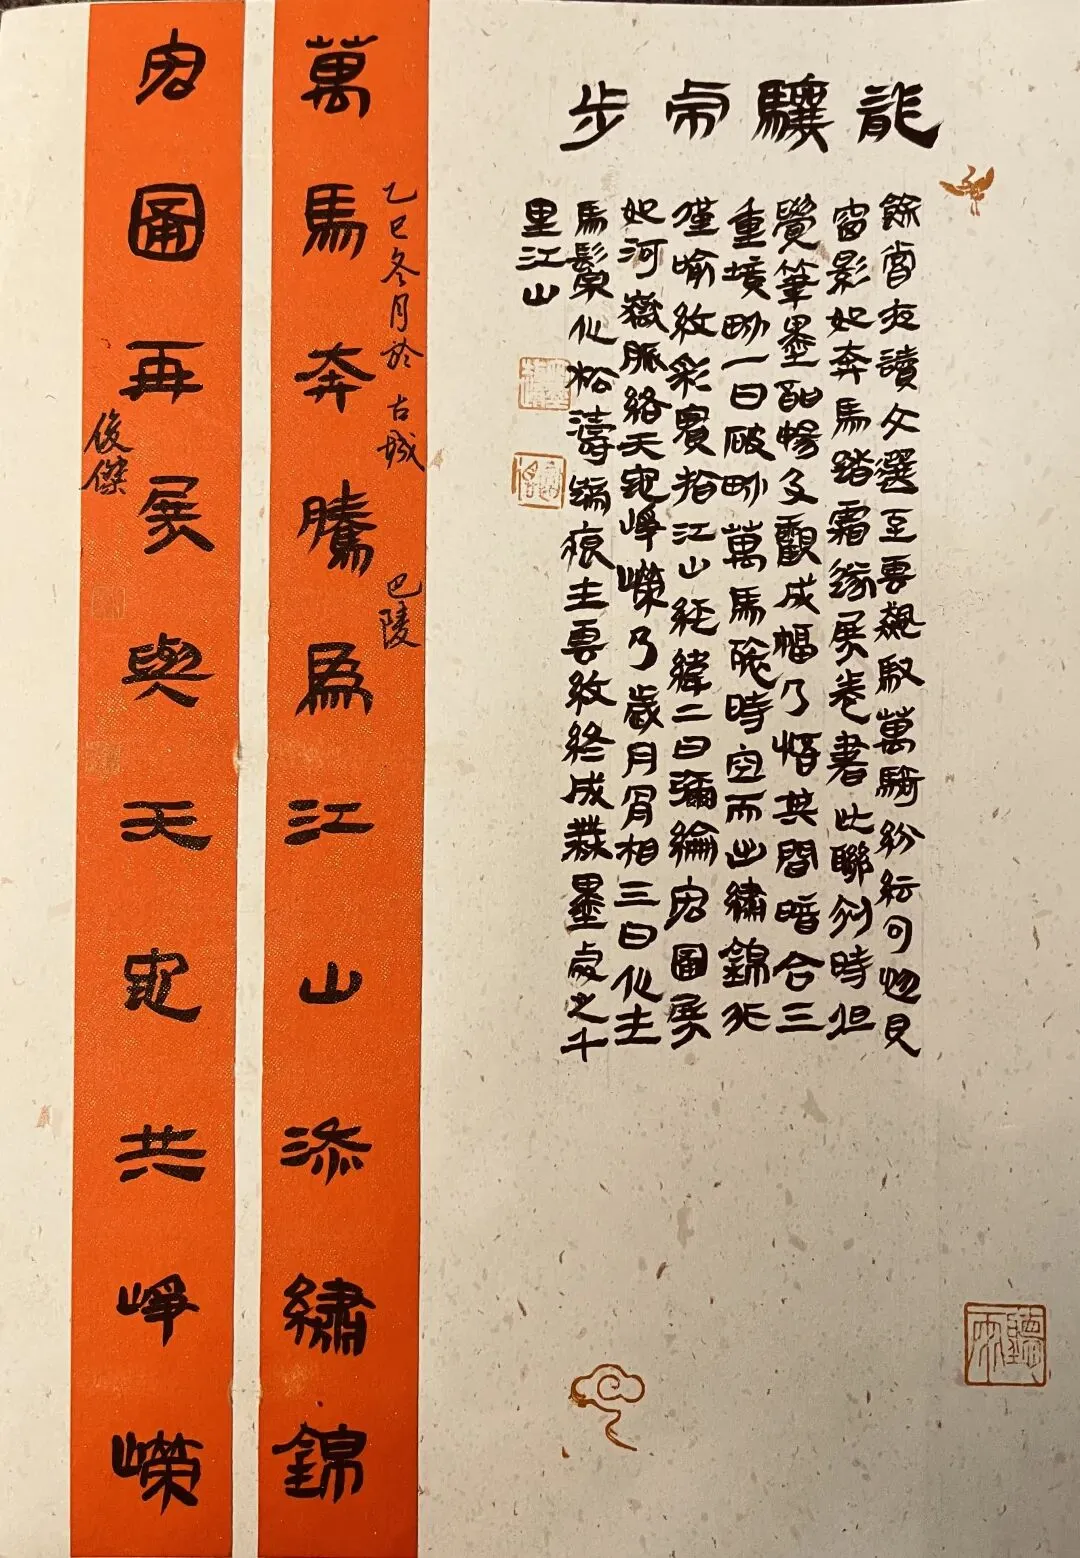 龍驤虎步
餘嘗夜讀文選至雲飆馭萬騎紛紜句忽見
窗影如奔馬踏霜遂展卷書此聯初時但
覺筆墨酣暢及觀成幅乃悟其間暗合三
重境畍一曰破畍萬馬時空而出繡錦非
僅喻紋彩實指江山經緯二曰彌綸宏圖展
如河嶽脈絡天地崢嶸乃歲月骨相三曰化生
馬鬃化松濤蹄痕生雲紋終成無墨處之千
里江山
乙巳冬月於古城 巴陵
萬馬奔騰爲江山添繡錦
宏圖再展與天地共崢嶸
俊傑
聽雨